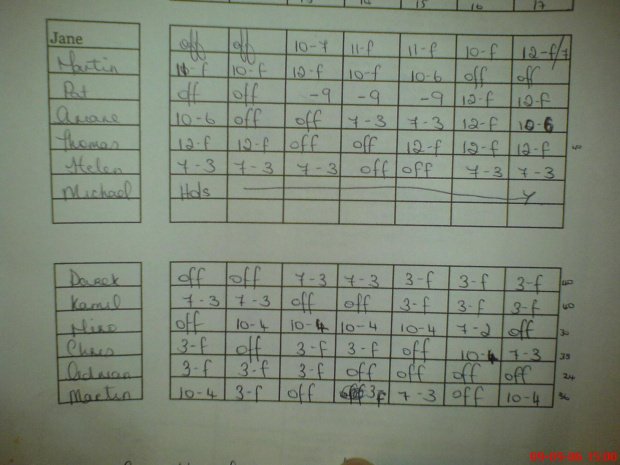 15 16 17
Jane off off 10-7 11-f 11-f 10-f 12-f/7
Martin 11-f 10-f 12-f 10-f 10-6 off off
Pat off off -9 -9 -9 12-f 12-f
Ariane 10-6 off off 7-3 7-3 12-f 10-6
Thomas 12-f 12-f off off 12-f 12-f 12-f
Helen 7-3 7-3 7-3 off off 7-3 7-3
Michael Hols
Dareck off off 7-3 7-3 3-f 3-f 3-f 40
Kamil 7-3 7-3 off off 3-f 3-f 3-f 40
Nino off 10-4 10-4 10-4 10-4 7-2 off 30
Chris 3-f off 3-f 3-f off 10-4 7-3
Adrian 3-f 3-f 3-f off off off off 24
Martin 10-4 3-f off 3f 7-3 off 10-4
09-09-06 15:00